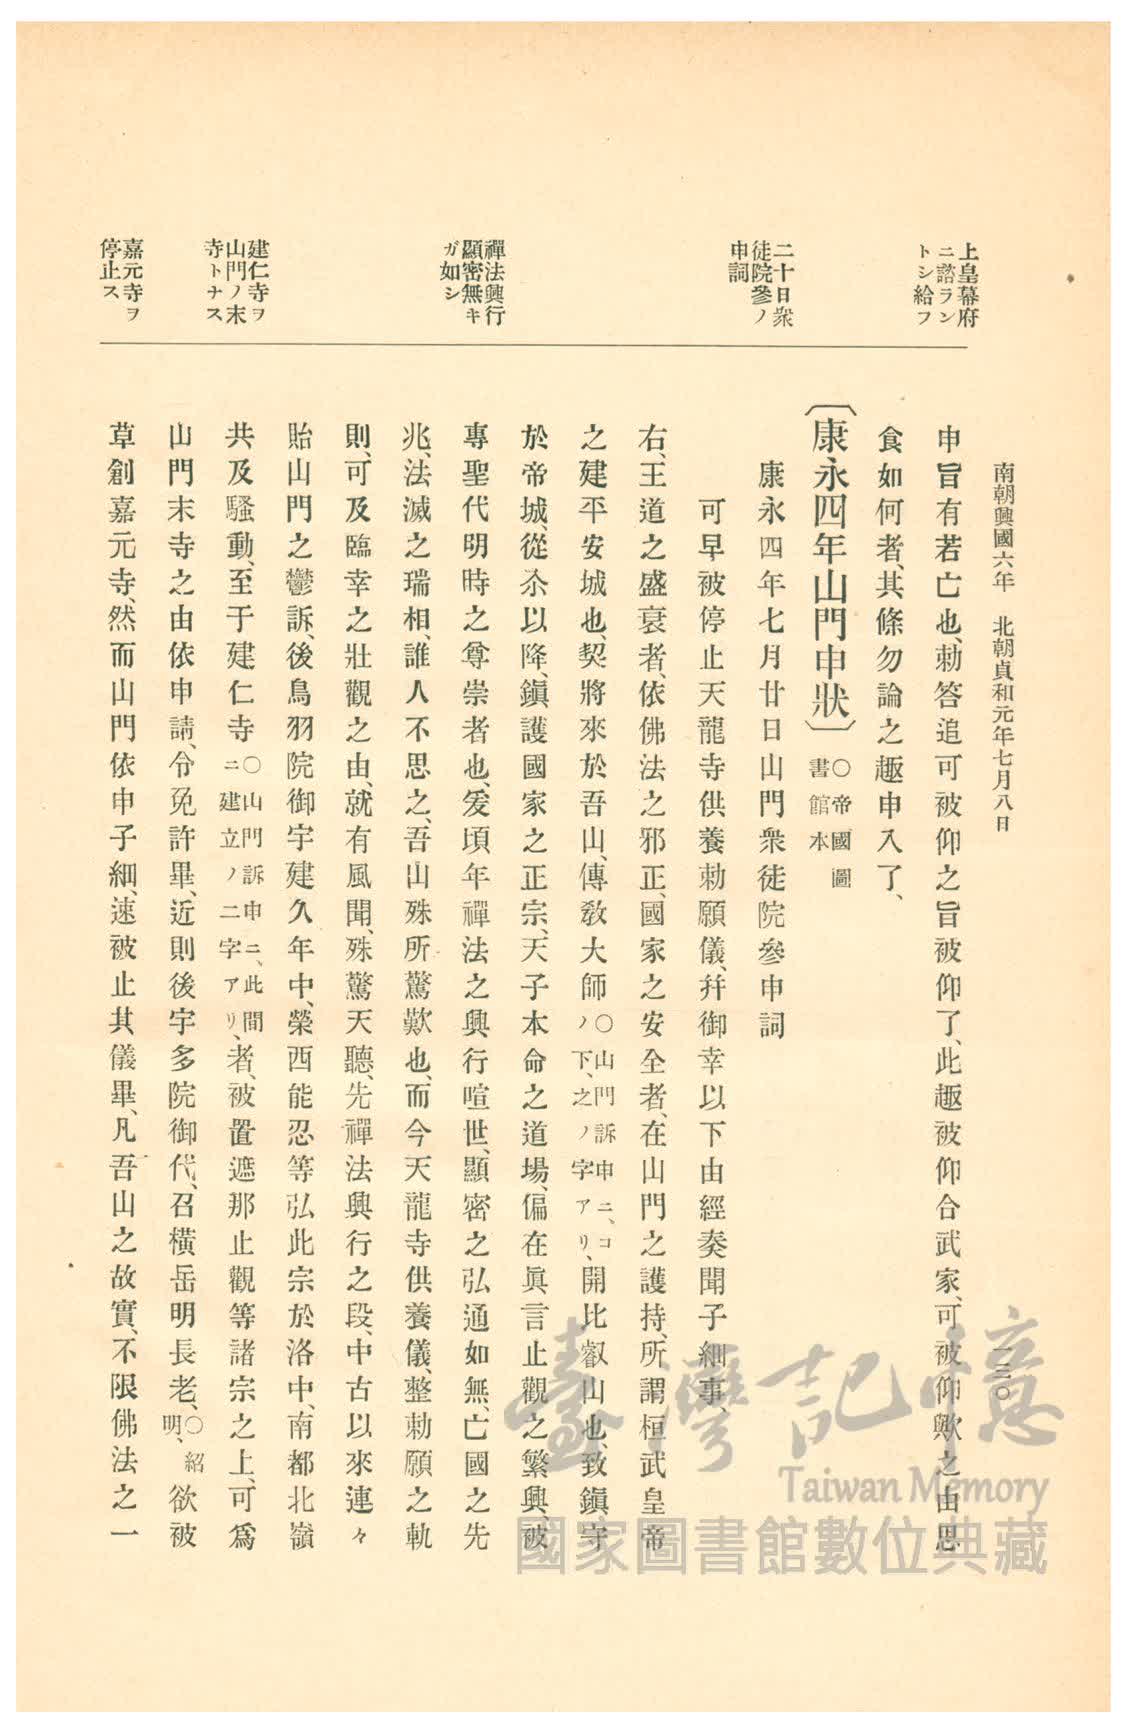 南朝興國六年　北朝貞和元年七月八日
一三〇
上皇幕府
ニ諮ラン
トシ給フ
二十日衆
徒院參ノ
申詞
禪法興行
顯密無キ
ガ如シ
建仁寺ヲ
山門ノ末
寺トナス
嘉元寺ヲ
停止ス
申旨有若亡也、勅答追可被仰之旨被仰了、此趣被仰合武家、可被仰歟之由思
食如何者、其條勿論之趣申入了、
〔康永四年山門申狀〕○帝國圖書館本
康永四年七月廿日山門衆徒院參申詞
可早被停止天龍寺供養勅願儀、幷御幸以下由經奏聞子細事、
右、王道之盛衰者、依佛法之邪正、國家之安全者、在山門之護持、所謂桓武皇帝
之建平安城也、契將來於吾山、傳敎大師○山門訴申ニ、コノ下、之ノ字アリ、開比叡山也、致鎭守
於帝城、從尒以降、鎭護國家之正宗、天子本命之道場、偏在眞言止觀之繁興、被
專聖代明時之尊崇者也、爰頃年禪法之興行喧世、顯密之弘通如無、亡國之先
兆、法滅之瑞相、誰人不思之、吾山殊所驚歎也、而今天龍寺供養儀、整勅願之軌
則、可及臨幸之壯觀之由、就有風聞、殊驚天聽、先禪法興行之段、中古以來連々
貽山門之鬱訴、後鳥羽院御宇建久年中、榮西能忍等弘此宗於洛中、南都北嶺
共及騷動、至于建仁寺○山門訴申ニ、此間ニ建立ノ二字アリ、者、被置遮那止觀等諸宗之上、可爲
山門末寺之由依申請、令免許畢、近則後宇多院御代、召橫岳明長老、○紹明、欲被
草創嘉元寺、然而山門依申子細、速被止其儀畢、凡吾山之故實、不限佛法之一
臺灣記憶
Taiwan Memory
國家圖書館數位典藏